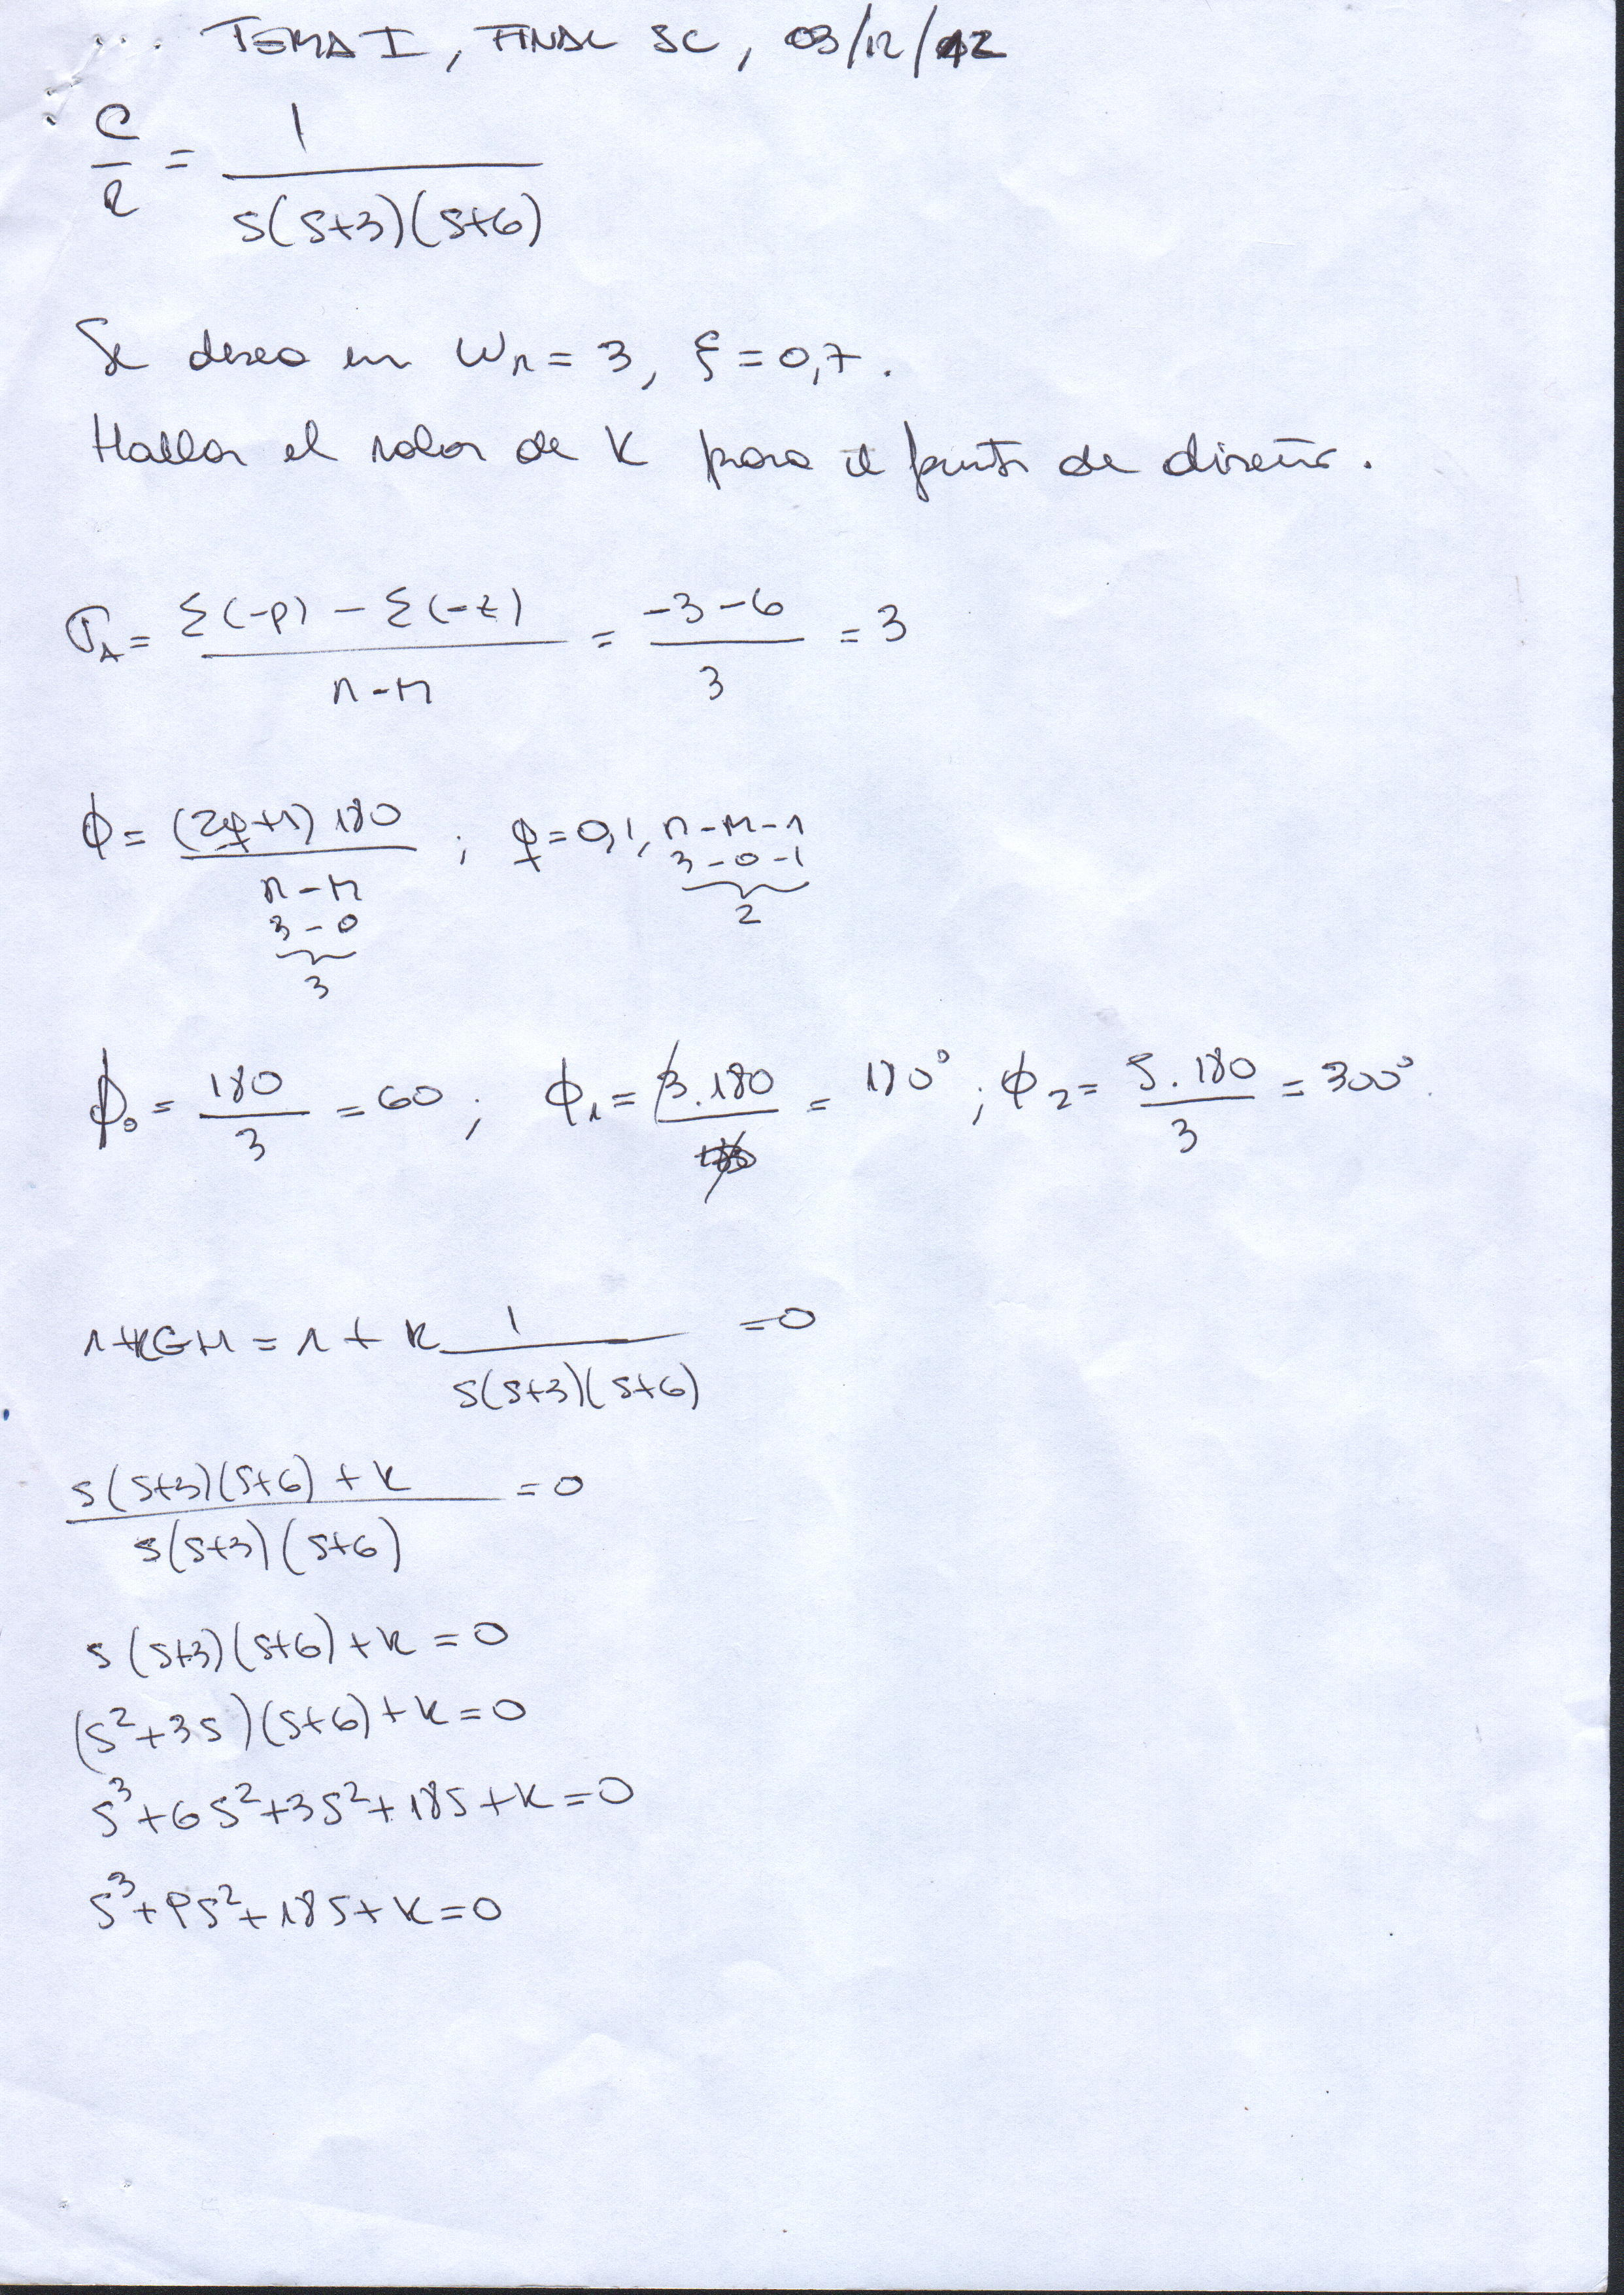 TEMA I, FINAL SC, 03/12/12
C/R = 1/(s(s+3)(s+6))
Se desea en Wn = 3, ξ = 0,7.
Hallar el valor de K para el punto de diseño.
σA = (Σ(-p) - Σ(-z))/(n-M) = (-3-6)/3 = 3
ϕ = (2q+1)180/(n-M) ; q = 0,1, n-M-1
3-0 3-0-1
3 2
ϕ0 = 180/3 = 60 ; ϕ1 = 3.180/ = 180° ; ϕ2 = 5.180/3 = 300°.
1+KGH = 1 + K 1/(s(s+3)(s+6)) = 0
(s(s+3)(s+6) + K)/(s(s+3)(s+6)) = 0
s(s+3)(s+6) + K = 0
(s²+3s)(s+6) + K = 0
s³+6s²+3s²+18s+K=0
s³+9s²+18s+K=0